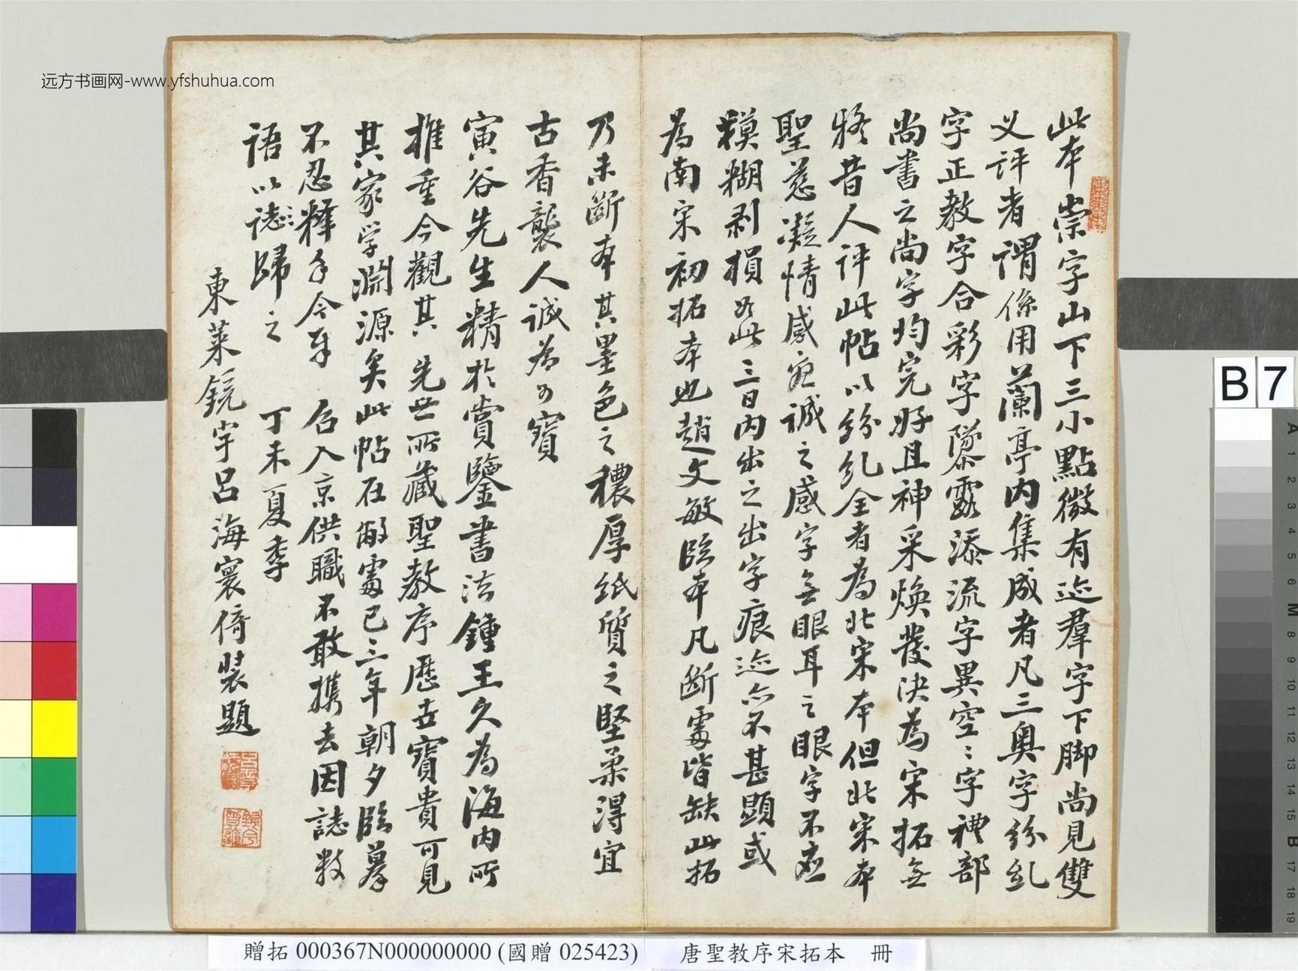 远方书画网-www.yfshuhua.com
此本崇字山下三小點微有迹羣字下脚尚見雙
义評者謂係用蘭亭內集成者凡三奥字紛乱
字正教字合彩字墜露添流字異空〻字禮部
尚書之尚字均完好且神采煥發決為宋拓無
終昔人評此帖以紛乱全者為北宋本但北宋本
聖慈凝情感誠之感字無眼耳之眼字不應
模糊剥損如此三日内出之出字痕迹亦不甚顯或
為南宋初拓本也趙文敏臨本凡斷處皆缺此拓
乃未斷本其墨色之穠厚紙質之堅柔得宜
古香襲人誠為可寶
寅谷先生精於賞鑒書法鍾王久為海内所
推重今觀其先世所藏聖教序歷古寶貴可見
其家学淵源矣此帖在敝處已三年朝夕臨摹
不忍釋手今年召入京供職不敢携去因誌数
語以誌歸之
丁未夏季
東萊鏡宇呂海寰倚装題
B7
贈拓 000367N000000000 (國贈 025423)
唐聖教序宋拓本 冊